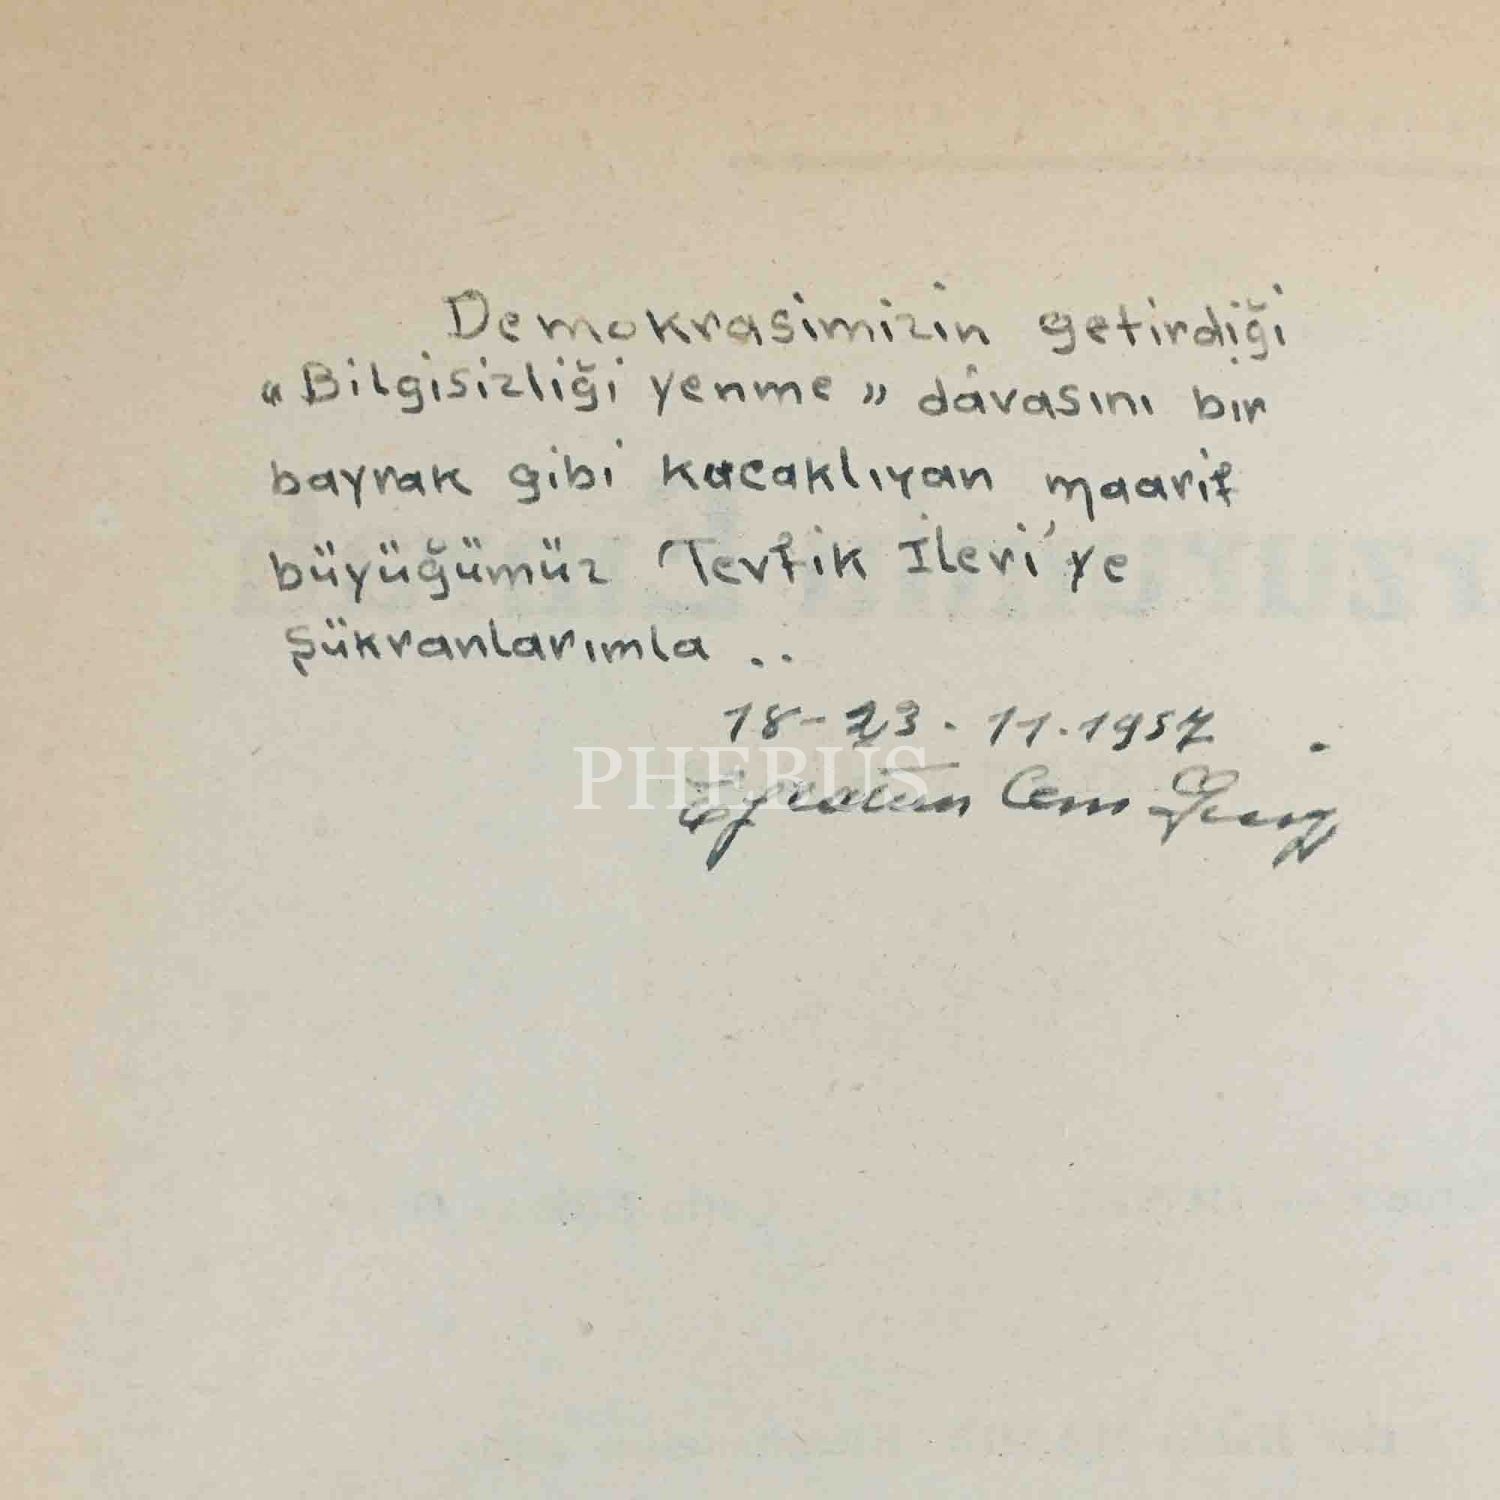 Demokrasimizin getirdiği
«Bilgisizliği yenme» dâvasını bir
bayrak gibi kucaklıyan maarif
büyüğümüz Tevfik İleri'ye
Şükranlarımla ..
18-23.11.1957
PHEBUS
Eflatun Cem Güney